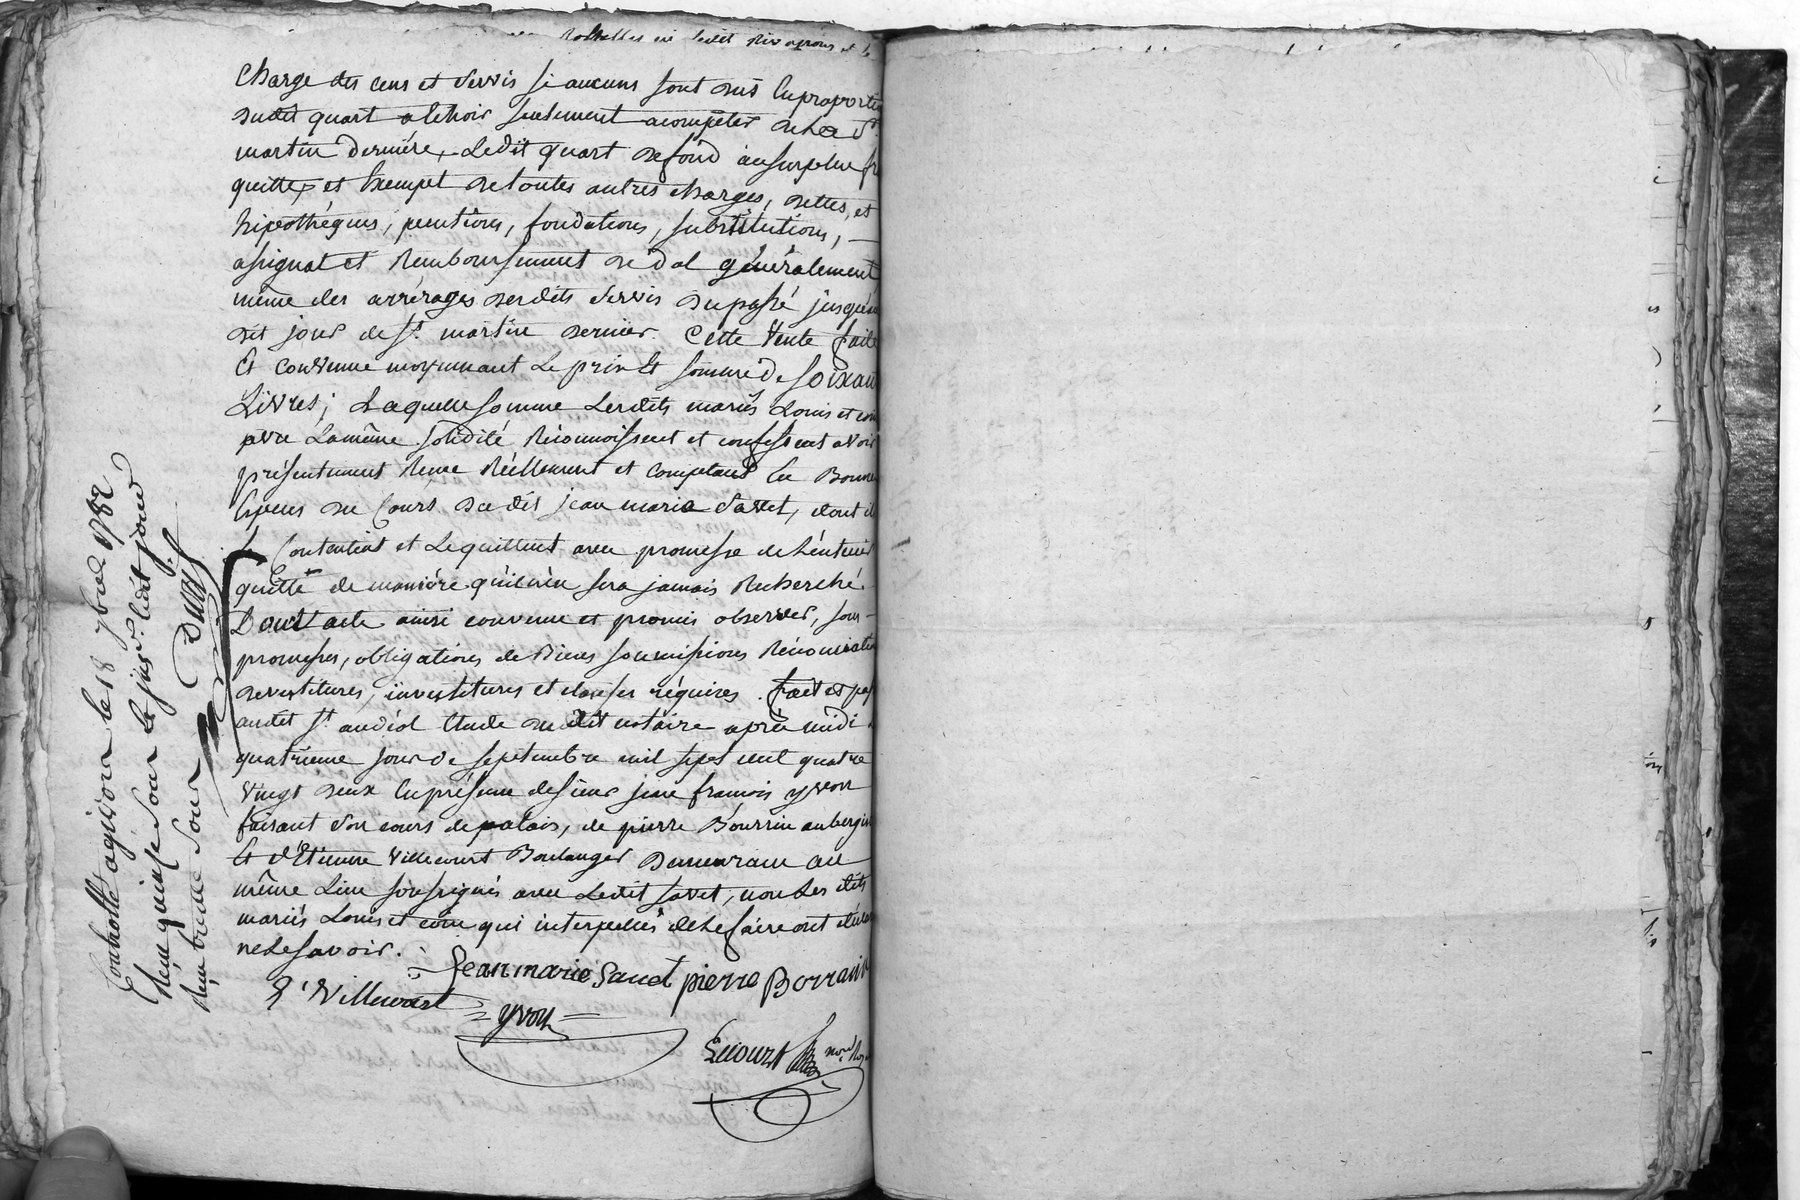 charge des cens et servis si aucuns sont dus en proportion
dudit quart a echoir seulement a compter de la St
martin derniére, Ledit quart de fond au surplus fr
quitte, et exempt de toutes autres charges, dettes, et
hipothéques, pentions, fondations, substitutions,
assignat et Remboursement de dol généralement
même des arrérages desdits servis du passé jusqu'au
dit jour de St martin dernier. Cette Vente faite
Et convenue moyennant Le prix Et somme de soixante
Livres; Laquelle somme Lesdits mariés Louis et com
avec La même solidité Reconnoissent et confessent avoir
présentement Reçue Réellement et comptant En Bonne
Especes du Cours dudit jean marie Savet, dont il
Se Contentent et Le quittent avec promesse de L'en tenir
quitte de maniére qu'il n'en sera jamais Recherché.
Dont acte ainsi convenu et promis observer, sous
promesses, obligations de Biens soumissions Renonciation
devestitures, investitures et clauses réquises. fait et passé
audit St andéol Etude dudit notaire aprés midi
quatrieme jour de septembre mil sept cent quatre
Vingt deux En présence de sieur jean francois yvon
faisant son cours de palais, de pierre Bourrin aubergiste
Et d'Etienne Villecourt Boulanger Demeurant au
même Lieu soussignés avec Ledit savet, non Les dits
mariés Louis et com qui interpellés de Le faire ont déclaré
ne Le savoir.
Jean marie Savet pierre Borrain
E Villecourt
yvon
Lecourt nore Roy
Controllé a avignon le 18 7bre 1782
Reçu quinze sous le insin. Ledit jour
Reçu treize sous
Duval